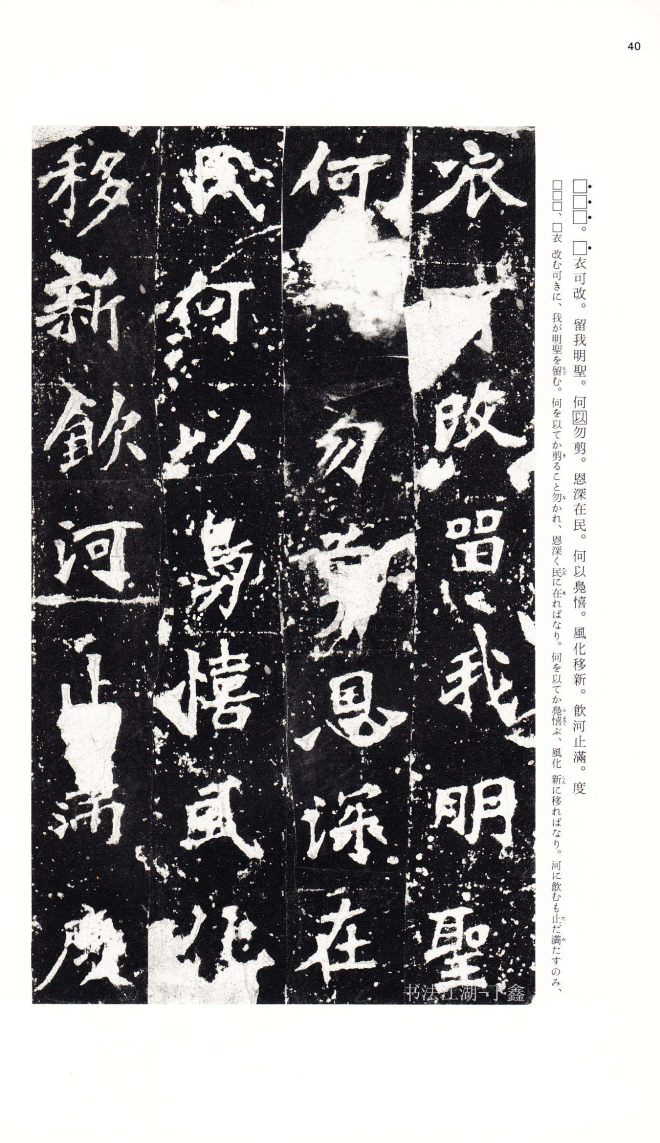 40
□□□。□衣可改。留我明聖。何以勿剪。恩深在民。何以鳧憘。風化移新。飲河止滿。度
□□□、□衣 改む可きに、我が明聖を留む。何を以てか剪ること勿かれ、恩深く民に在ればなり。何を以てか鳧憘ぶ、風化 新に移ればなり。河に飲むも止だ滿たすのみ、
衣可改留我明聖
何勿剪恩深在
民何以鳧憘風化
移新飲河止滿度
书法江湖-丁鑫